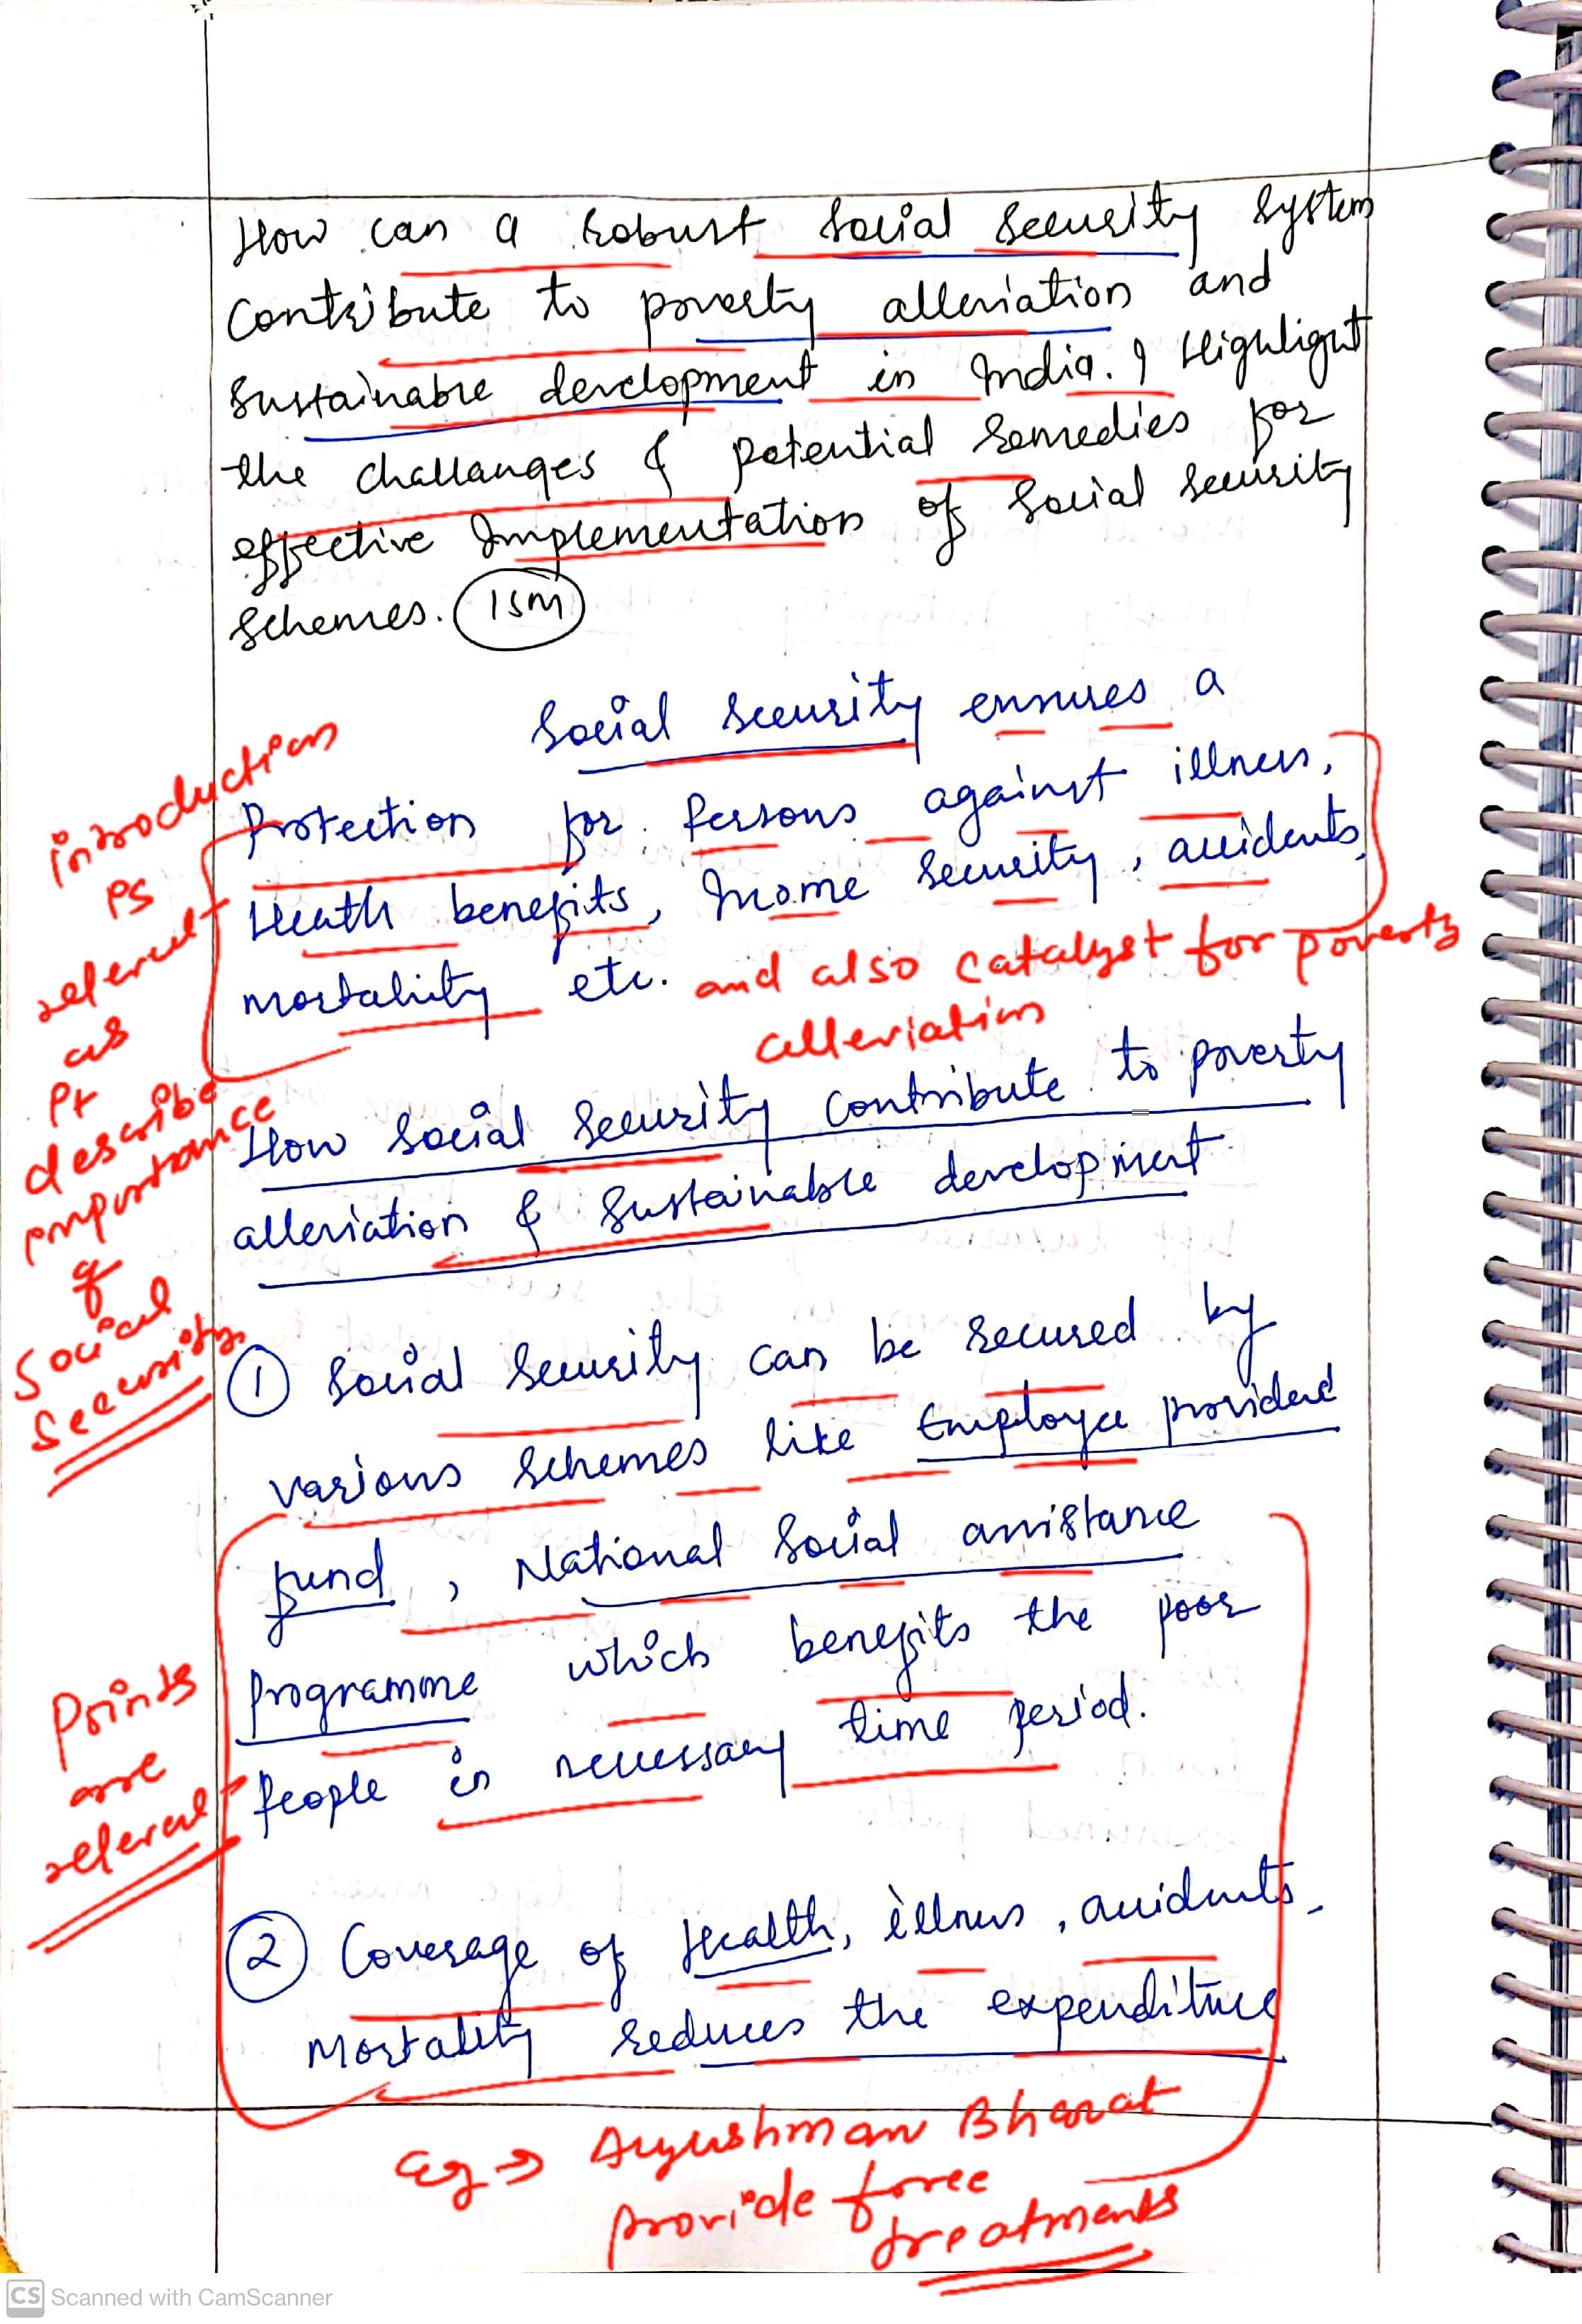 How can a robust social security system
contribute to poverty alleviation and
sustainable development in India. ? Highlight
the challanges & potential remedies for
effective Implementation of social security
schemes. 15M
Social security ensures a
Protection for Persons against illness,
Heath benefits, Income security, accidents,
mortality etc. and also catalyst for poverty
alleviation
introduction
is
relevent
as
it
describe
importance
of
Social
Security
How social security contribute to poverty
alleviation & sustainable development
1 Social security can be secured by
various schemes like Employee provident
fund, National Social assistance
Programme which benefits the poor
People in necessary time period.
Points
are
relevent
2 Coverage of Health, illness, accidents,
Mortality reduces the expenditure
Eg → Ayushman Bharat
provide free
treatments
CS Scanned with CamScanner